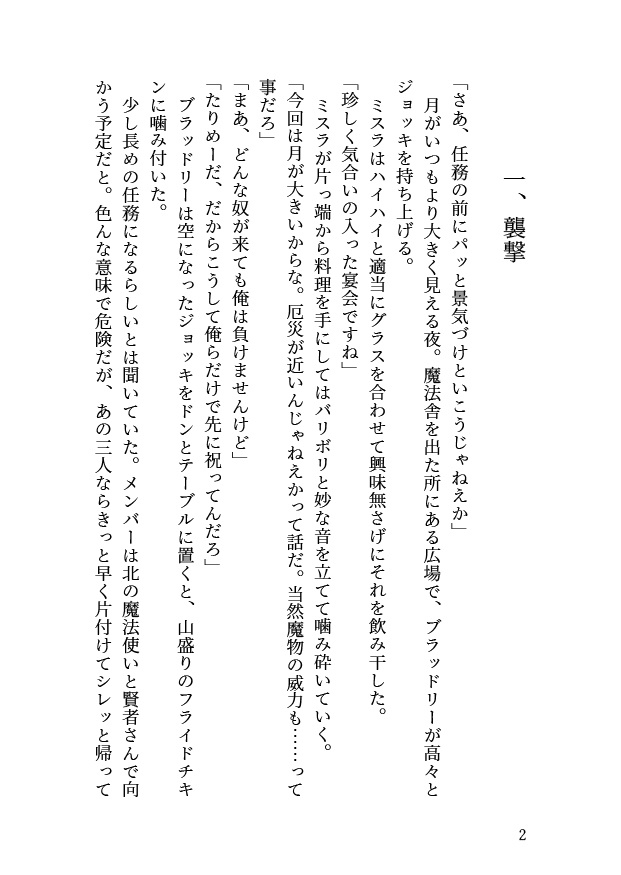 一、襲撃
「さあ、任務の前にパッと景気づけといこうじゃねえか」
　月がいつもより大きく見える夜。魔法舎を出た所にある広場で、ブラッドリーが高々と
ジョッキを持ち上げる。
　ミスラはハイハイと適当にグラスを合わせて興味無さげにそれを飲み干した。
「珍しく気合いの入った宴会ですね」
　ミスラが片っ端から料理を手にしてはバリボリと妙な音を立てて噛み砕いていく。
「今回は月が大きいからな。厄災が近いんじゃねえかって話だ。当然魔物の威力も……って
事だろ」
「まあ、どんな奴が来ても俺は負けませんけど」
「たりめーだ、だからこうして俺らだけで先に祝ってんだろ」
　ブラッドリーは空になったジョッキをドンとテーブルに置くと、山盛りのフライドチキ
ンに噛み付いた。
　少し長めの任務になるらしいとは聞いていた。メンバーは北の魔法使いと賢者さんで向
かう予定だと。色んな意味で危険だが、あの三人ならきっと早く片付けてシレッと帰って
2